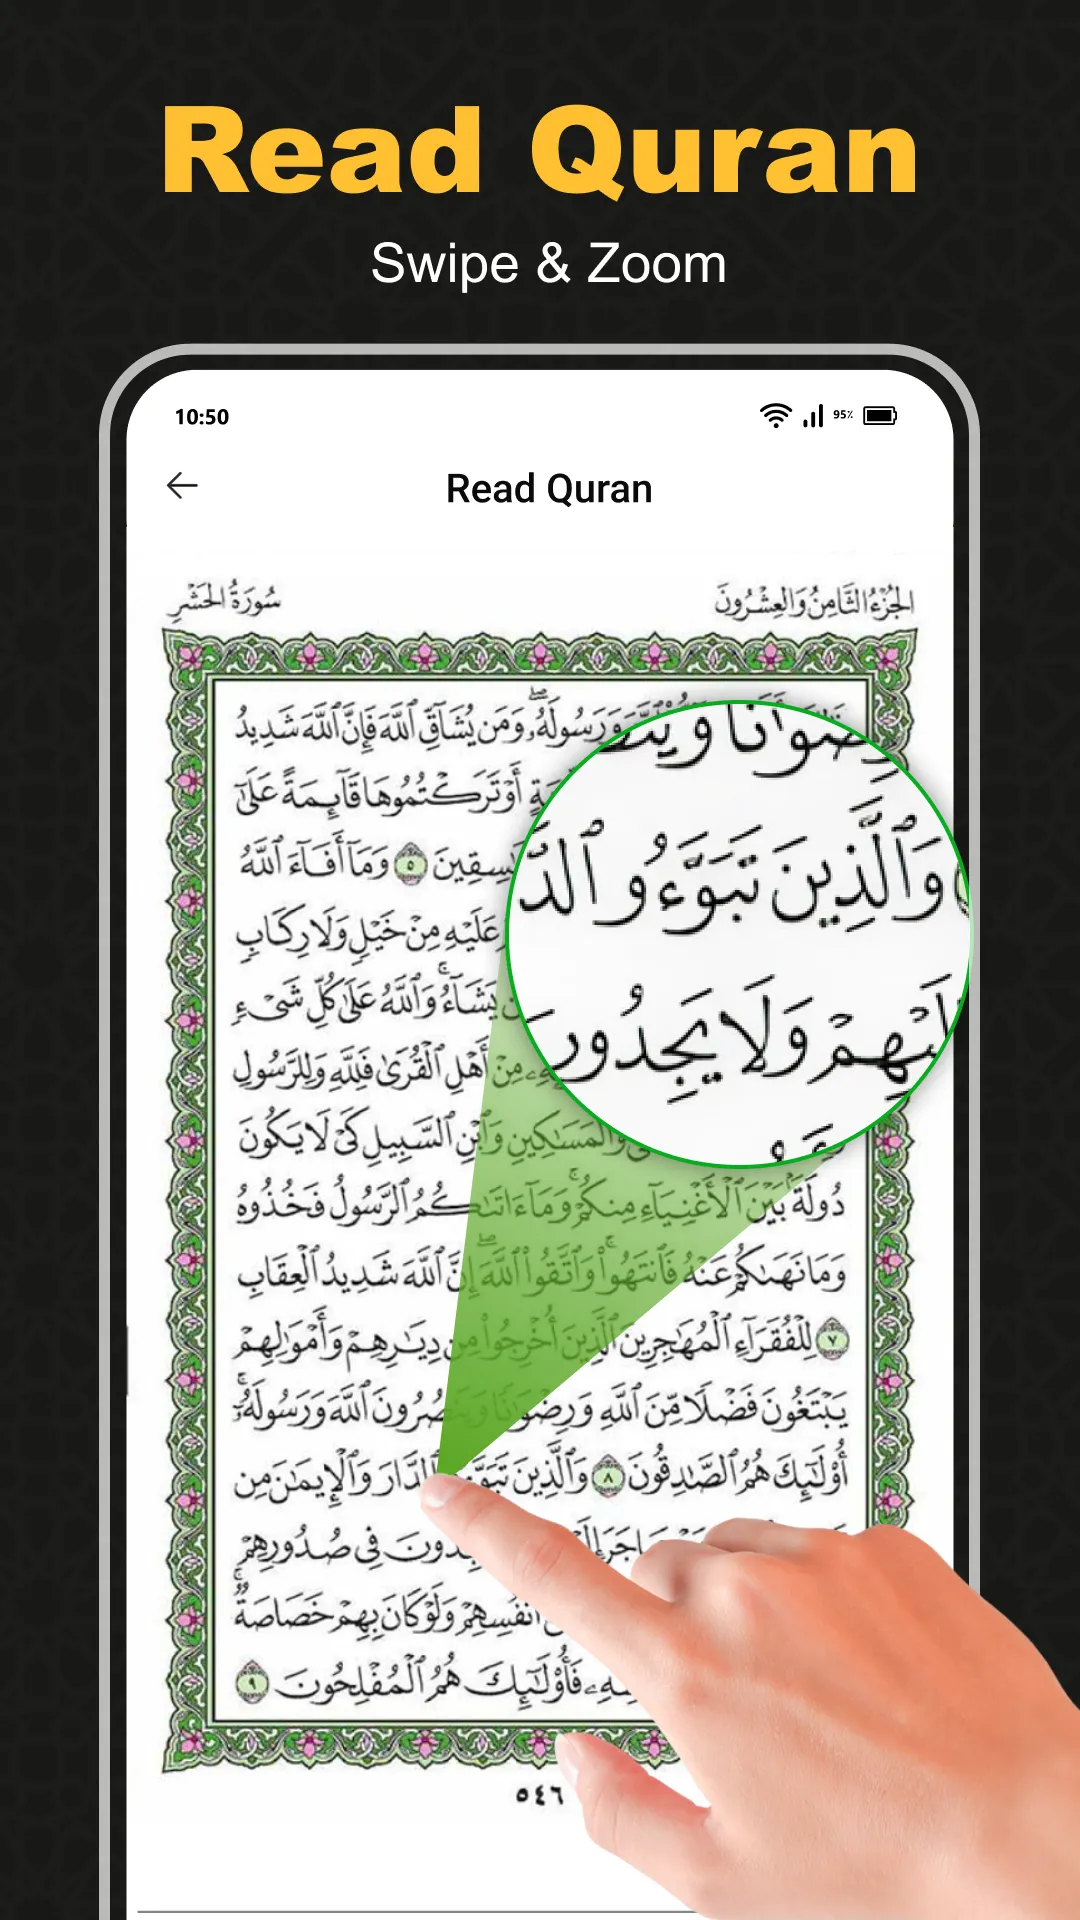 Read Quran
Swipe & Zoom
10:50
95%
Read Quran
الجُزْءُ الثَّامِنُ وَالعِشْرُونَ
سُورَةُ الحَشْرِ
وَرَسُولَهُۥۖ وَمَن يُشَآقِّ ٱللَّهَ فَإِنَّ ٱللَّهَ شَدِيدُ
أَوْ تَرَكْتُمُوهَا قَآئِمَةً عَلَىٰٓ
٥ وَمَآ أَفَآءَ ٱللَّهُ
عَلَيْهِ مِنْ خَيْلٍ وَلَا رِكَابٍ
يَشَآءُۚ وَٱللَّهُ عَلَىٰ كُلِّ شَىْءٍ
مِنْ أَهْلِ ٱلْقُرَىٰ فَلِلَّهِ وَلِلرَّسُولِ
وَٱلْمَسَٰكِينِ وَٱبْنِ ٱلسَّبِيلِ كَىْ لَا يَكُونَ
دُولَةًۢ بَيْنَ ٱلْأَغْنِيَآءِ مِنكُمْۚ وَمَآ ءَاتَىٰكُمُ ٱلرَّسُولُ فَخُذُوهُ
وَمَا نَهَىٰكُمْ عَنْهُ فَٱنتَهُوا۟ۚ وَٱتَّقُوا۟ ٱللَّهَۖ إِنَّ ٱللَّهَ شَدِيدُ ٱلْعِقَابِ
٧ لِلْفُقَرَآءِ ٱلْمُهَٰجِرِينَ ٱلَّذِينَ أُخْرِجُوا۟ مِن دِيَٰرِهِمْ وَأَمْوَٰلِهِمْ
يَبْتَغُونَ فَضْلًا مِّنَ ٱللَّهِ وَرِضْوَٰنًا وَيَنصُرُونَ ٱللَّهَ وَرَسُولَهُۥٓۚ
أُو۟لَٰٓئِكَ هُمُ ٱلصَّٰدِقُونَ ٨ وَٱلَّذِينَ تَبَوَّءُو ٱلدَّارَ وَٱلْإِيمَٰنَ مِن
فِى صُدُورِهِمْ
أَنفُسِهِمْ وَلَوْ كَانَ بِهِمْ خَصَاصَةٌۚ
فَأُو۟لَٰٓئِكَ هُمُ ٱلْمُفْلِحُونَ ٩
٥٤٦
وَٱلَّذِينَ تَبَوَّءُو
وَلَا